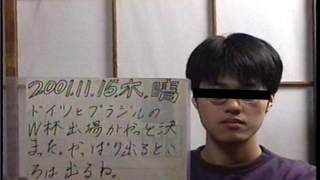 2001.11.15.木.晴
ドイツとブラジルの
W杯出場がやっと決
まった。やっぱり出るとこ
ろは出るね。